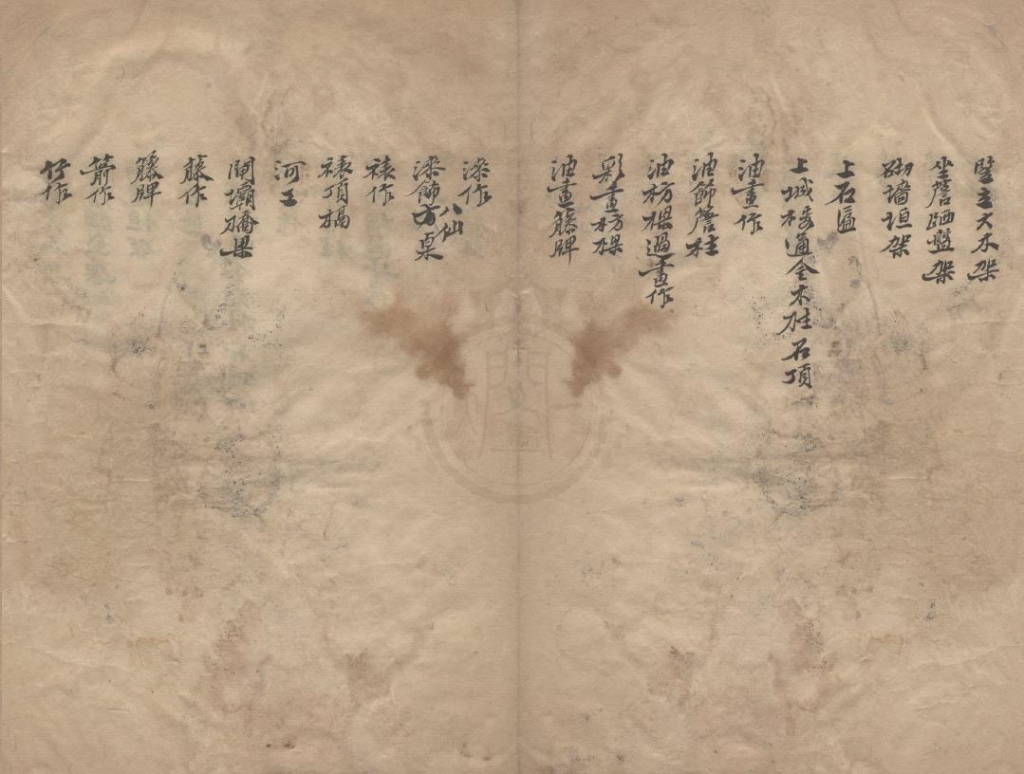 竪立大木架
坐簷晒盤架
砌墻垣架
上石匾
上城樓通金木柱石頂
油畫作
油飾簷柱
油枋樑過畫作
彩畫枋樑
油畫籐牌
漆作
漆飾八仙方桌
裱作
裱頂槅
河工
閘壩橋梁
籐作
籐牌
箭作
竹作